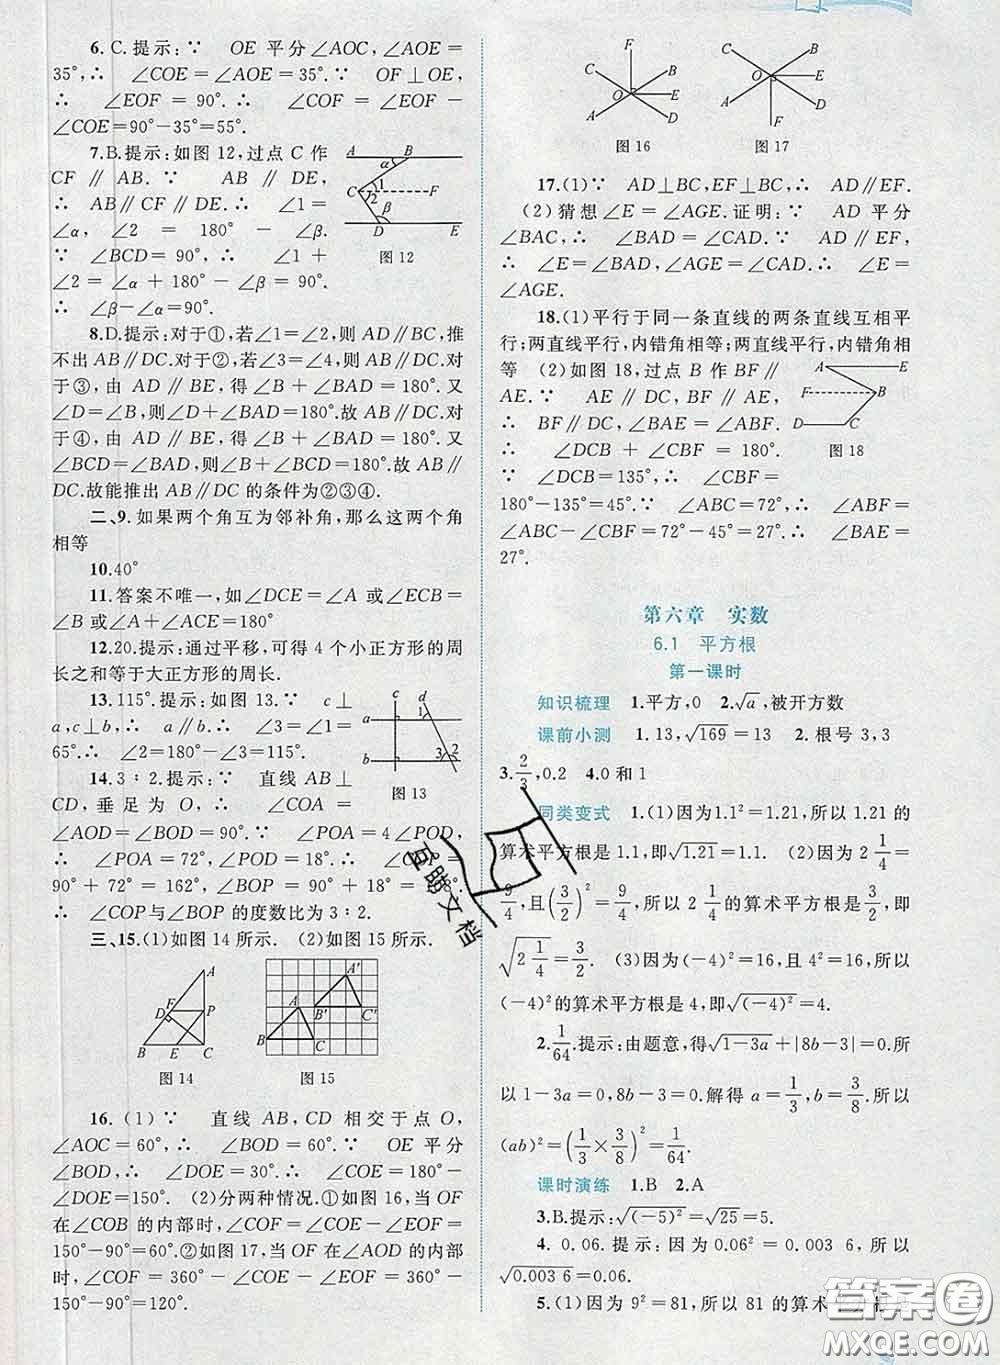 6. C. 提示:∵ OE 平分∠AOC,∠AOE=
35°,∴ ∠COE=∠AOE=35°. ∵ OF⊥OE,
∴ ∠EOF = 90°. ∴ ∠COF = ∠EOF −
∠COE=90°−35°=55°.
7. B. 提示:如图 12,过点 C 作
CF ∥ AB. ∵ AB ∥ DE,
∴ AB∥CF∥DE. ∴ ∠1=
∠α, ∠2 = 180° − ∠β.
∵ ∠BCD=90°,∴ ∠1+
∠2 = ∠α + 180° − ∠β = 90°.
∴ ∠β−∠α=90°.
A B α C 1 2 F β D E
图 12
8. D. 提示:对于①,若∠1=∠2,则 AD∥BC,推
不出 AB∥DC. 对于②,若∠3=∠4,则 AB∥DC. 对
于③,由 AD∥BE,得∠B+∠BAD=180°. 又
∠D=∠B,则∠D+∠BAD=180°. 故 AB∥DC. 对
于④,由 AD∥BE,得∠B+∠BAD=180°. 又
∠BCD=∠BAD,则∠B+∠BCD=180°. 故 AB∥
DC. 故能推出 AB∥DC 的条件为②③④.
二、9. 如果两个角互为邻补角,那么这两个角
相等
10. 40°
11. 答案不唯一,如∠DCE=∠A 或∠ECB=
∠B 或∠A+∠ACE=180°
12. 20. 提示:通过平移,可得 4 个小正方形的周
长之和等于大正方形的周长.
13. 115°. 提示:如图 13. ∵ c⊥
a,c⊥b,∴ a∥b. ∴ ∠3=∠1=
65°. ∴ ∠2=180°−∠3=115°.
c d a 1 b 3 2
图 13
14. 3∶2. 提示:∵ 直线 AB⊥
CD,垂足为 O,∴ ∠COA=
∠AOD=∠BOD=90°. ∵ ∠POA=4∠POD,
∴ ∠POA=72°,∠POD=18°. ∴ ∠COP=
90°+72°=162°,∠BOP=90°+18°=108°.
∴ ∠COP与∠BOP 的度数比为 3∶2.
三、15. (1)如图 14 所示. (2)如图 15 所示.
A F D P B E C
图 14
A A' B B' C C'
图 15
16. (1)∵ 直线 AB,CD 相交于点 O,
∠AOC=60°,∴ ∠BOD=60°. ∵ OE 平分
∠BOD,∴ ∠DOE=30°. ∴ ∠COE=180°−
∠DOE=150°. (2)分两种情况. ①如图 16,当 OF
在∠COB 的内部时,∠COF=∠COE−∠EOF=
150°−90°=60°. ②如图 17,当 OF 在∠AOD 的内部
时,∠COF = 360° − ∠COE − ∠EOF = 360° −
150°−90°=120°.
F C B O E A D
图 16
C B O E A D F
图 17
17. (1)∵ AD⊥BC,EF⊥BC,∴ AD∥EF.
(2)猜想∠E=∠AGE. 证明:∵ AD 平分
∠BAC,∴ ∠BAD=∠CAD. ∵ AD∥EF,
∴ ∠E=∠BAD,∠AGE=∠CAD. ∴ ∠E=
∠AGE.
18. (1)平行于同一条直线的两条直线互相平
行;两直线平行,内错角相等;两直线平行,内错角相
等 (2)如图 18,过点 B 作 BF∥
AE. ∵ AE∥DC,BF∥AE,
∴ BF∥DC,∠BAE=∠ABF.
∴ ∠DCB + ∠CBF = 180°.
∵ ∠DCB=135°,∴ ∠CBF=
180°−135°=45°. ∵ ∠ABC=72°,∴ ∠ABF=
∠ABC−∠CBF=72°−45°=27°. ∴ ∠BAE=
27°.
A E F B D C
图 18
第六章 实数
6.1 平方根
第一课时
知识梳理 1. 平方,0 2. √a,被开方数
课前小测 1. 13,√169=13 2. 根号 3,3
3. 2/3,0.2 4. 0 和 1
同类变式 1. (1)因为1.1²=1.21,所以 1.21 的
算术平方根是 1.1,即√1.21=1.1. (2)因为 2 1/4=
9/4,且(3/2)²=9/4,所以 2 1/4 的算术平方根是3/2,即
√(2 1/4)=3/2. (3)因为(−4)²=16,且 4²=16,所以
(−4)²的算术平方根是 4,即√(−4)²=4.
2. 1/64. 提示:由题意,得√(1−3a)+|8b−3|=0. 所
以 1−3a=0,8b−3=0. 解得 a=1/3,b=3/8. 所以
(ab)²=(1/3×3/8)²=1/64.
课时演练 1. B 2. A
3. B. 提示:√(−5)²=√25=5.
4. 0.06. 提示:因为 0.06²=0.003 6,所以
√0.003 6=0.06.
5. (1)因为 9²=81,所以 81 的算术平方根
互助文档
答案圈
MXQE.COM